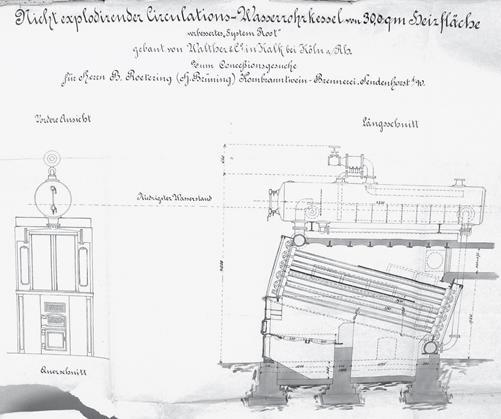 Nicht explodirender Circulations-Wasserrohrkessel von 30,0 qm Heizfläche
verbessertes „System Root“
gebaut von Walther & Cº in Kalk bei Köln a/Rh.
Zum Concessionsgesuche
für Herrn B. Roetering (H. Brüning) Kornbranntwein-Brennerei, Sendenhorst
Vordere Ansicht
Längsschnitt
Niedrigster Wasserstand
Querschnitt